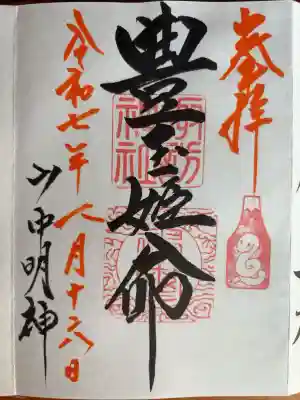 奉拝
豊玉姫命
神社
令和七年八月十六日
山中明神